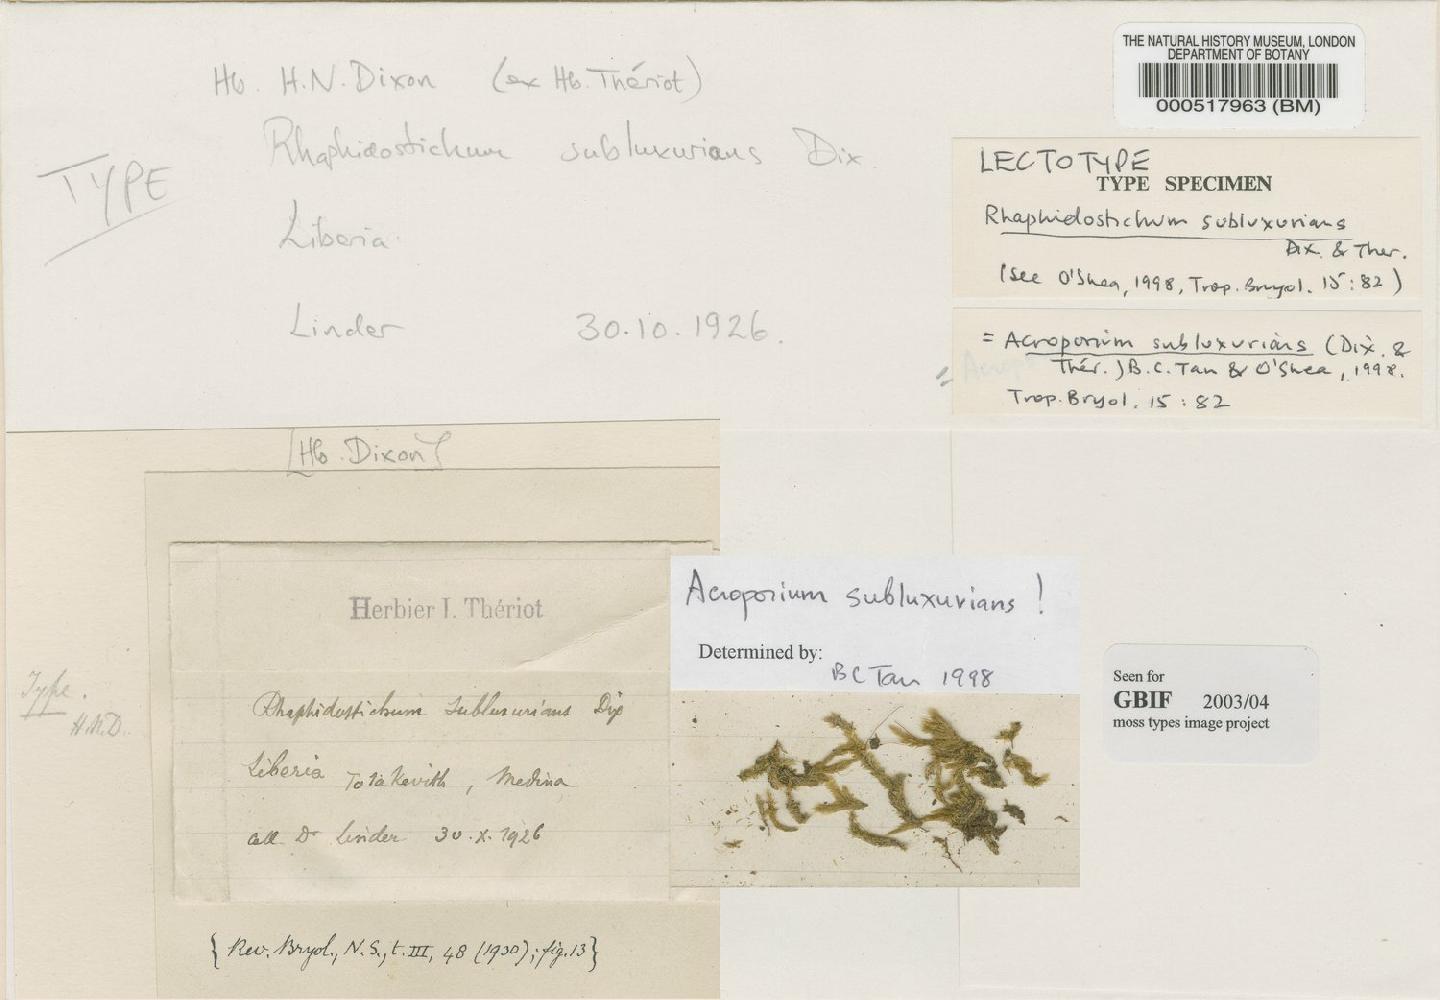 Hb. H.N. Dixon (ex Hb. Thériot)
Rhaphidostichum subluxurians Dix.
TYPE
Liberia.
Linder 30.10.1926.
THE NATURAL HISTORY MUSEUM, LONDON
DEPARTMENT OF BOTANY
000517963 (BM)
LECTOTYPE
TYPE SPECIMEN
Rhaphidostichum subluxurians
Dix. & Ther.
(see O'Shea, 1998, Trop. Bryol. 15:82)
= Acroporium subluxurians (Dix. &
Thér.) B.C. Tan & O'Shea, 1998.
Trop. Bryol. 15:82
= Acropo
[Hb. Dixon]
Herbier I. Thériot
Rhaphidostichum subluxurians Dix
Liberia Totakevith, Medina
coll. Dr Linder 30.X.1926
Type.
H.N.D.
{Rev. Bryol., N.S., t. III, 48 (1930); fig. 13}
Acroporium subluxurians!
Determined by:
BC Tan 1998
Seen for
GBIF 2003/04
moss types image project